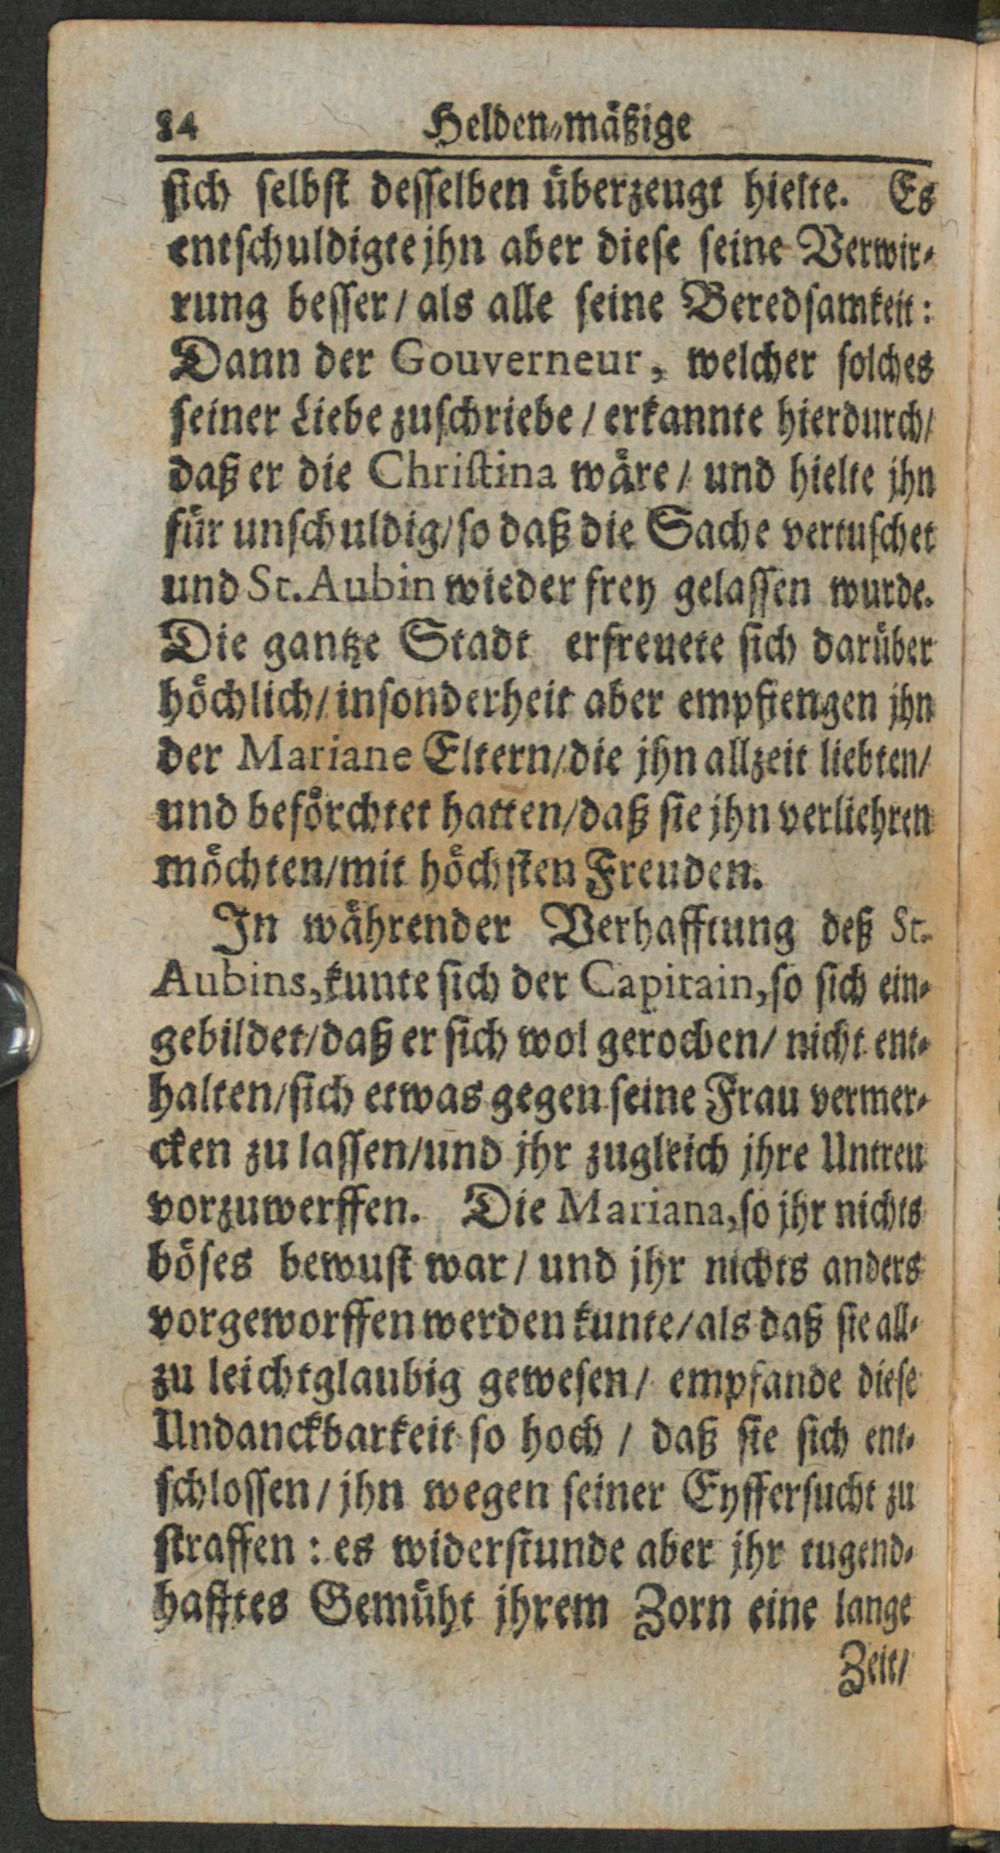 84 Helden-mäßige
sich selbst desselben überzeugt hielte. Es
entschuldigte jhn aber diese seine Verwir-
rung besser / als alle seine Beredsamkeit:
Dann der Gouverneur, welcher solches
seiner Liebe zuschriebe / erkannte hierdurch/
daß er die Christina wäre / und hielte jhn
für unschuldig/ so daß die Sache vertuschet
und St. Aubin wieder frey gelassen wurde.
Die gantze Stadt erfreuete sich darüber
höchlich/ insonderheit aber empfiengen jhn
der Mariane Eltern/ die jhn allzeit liebten/
und beförchtet hatten/ daß sie jhn verliehren
möchten/ mit höchsten Freuden.
In währender Verhafftung deß St.
Aubins, kunte sich der Capitain, so sich ein-
gebildet/ daß er sich wol gerochen/ nicht ent-
halten/ sich etwas gegen seine Frau vermer-
cken zu lassen/ und jhr zugleich jhre Untreu
vorzuwerffen. Die Mariana, so jhr nichts
böses bewust war / und jhr nichts anders
vorgeworffen werden kunte/ als daß sie all-
zu leichtglaubig gewesen / empfande diese
Undanckbarkeit so hoch / daß sie sich ent-
schlossen / jhn wegen seiner Eyffersucht zu
straffen: es widerstunde aber jhr tugend-
hafftes Gemüht jhrem Zorn eine lange
Zeit/